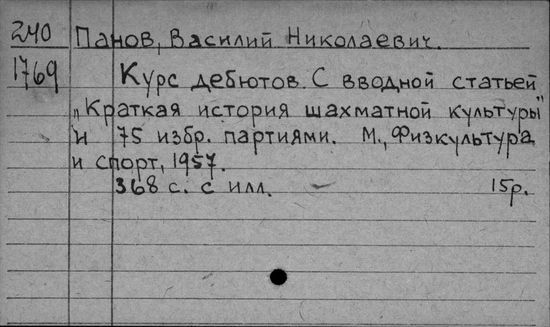 240 Панов, Василий Николаевич.
1769 Курс дебютов. С вводной статьей
„Краткая история шахматной культуры"
и 75 избр. партиями. М., Физкультура
и спорт, 1957.
368 с. с илл. 15р.